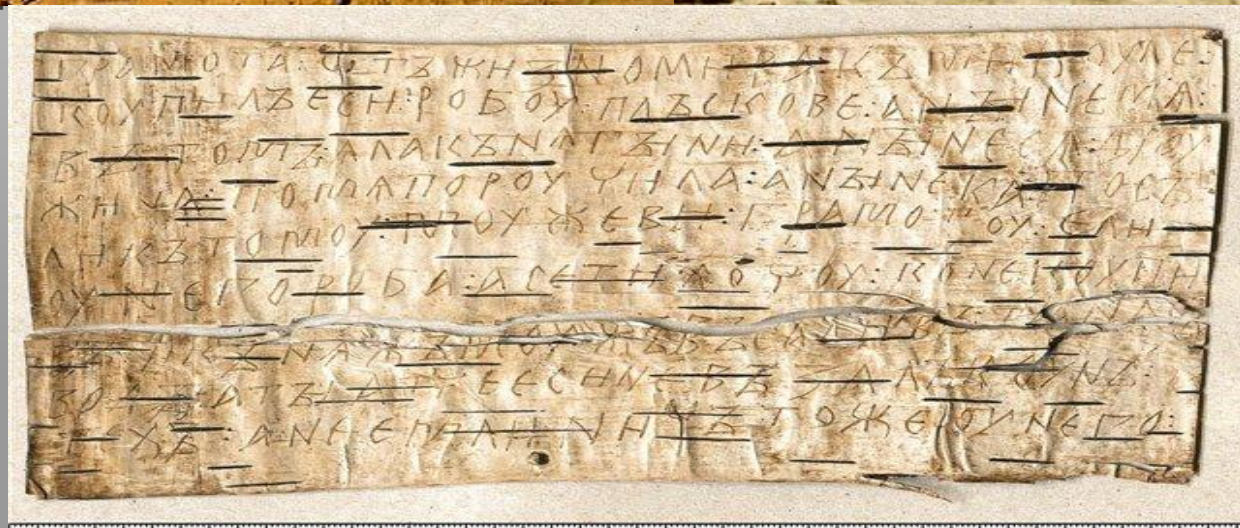 грамота : ѡтъ жизномира : къ микоуле :
коупилъ еси : робоу : плъскове : а нъıне мѧ :
въ томъ : ѧла кънѧгъıни : а нъıне сѧ дроу
жина : по мѧ пороучила : а нъıне ка : посъ
ли къ томоу : моужеви : грамотоу : е ли
оу него роба : а се ти хочоу : коне коупи
въ : и кънѧжъ моужъ въсадивъ : та на съ
водъ : а тъı атче еси не възалъ коунъ :
техъ : а не емли : ничъто же оу него :